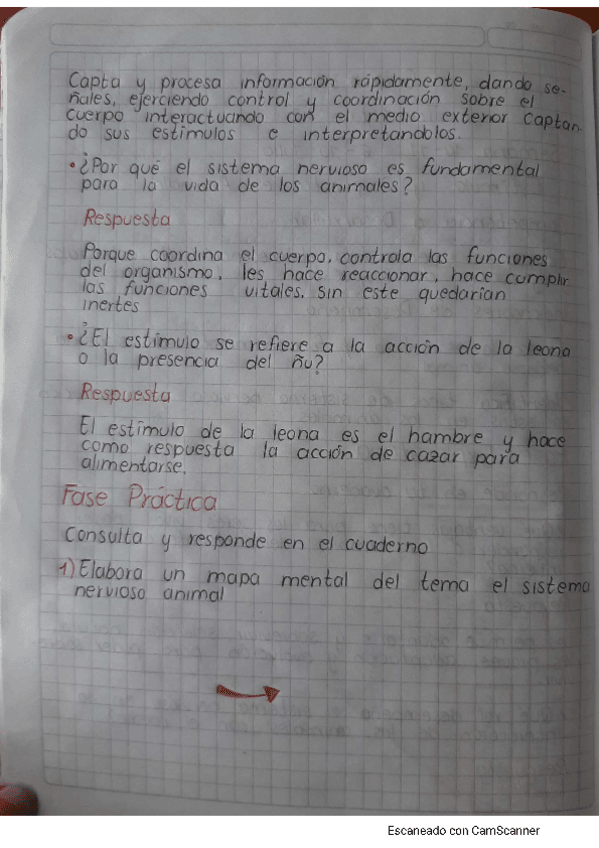 Capta y procesa información rápidamente, dando se-
ñales, ejerciendo control y coordinación sobre el
cuerpo interactuando con el medio exterior captan
do sus estímulos e interpretandolos.
• ¿Por qué el sistema nervioso es fundamental
para la vida de los animales?
Respuesta
Porque coordina el cuerpo, controla las funciones
del organismo, les hace reaccionar, hace cumplir
las funciones vitales. sin este quedarían
inertes
• ¿El estímulo se refiere a la acción de la leona
o la presencia del ñu?
Respuesta
El estímulo de la leona es el hambre y hace
como respuesta la acción de cazar para
alimentarse.
Fase Práctica
Consulta y responde en el cuaderno
1) Elabora un mapa mental del tema el sistema
nervioso animal
Escaneado con CamScanner